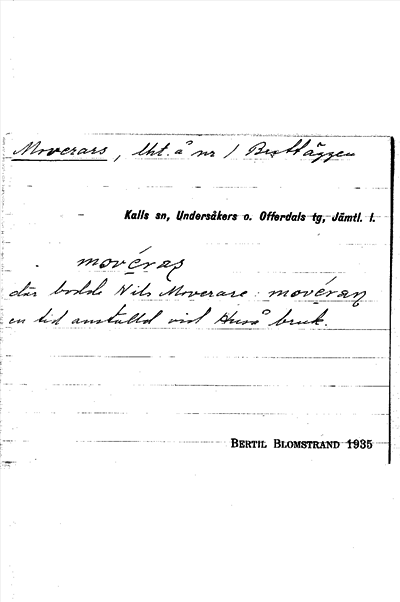 Moverars, lht. å nr 1 Bratläggen
Kalls sn, Undersåkers o. Offerdals tg, Jämtl. l.
movéraș
där bodde Nils Moverare: movéraṇ
en tid anställd vid Huså bruk.
BERTIL BLOMSTRAND 1935